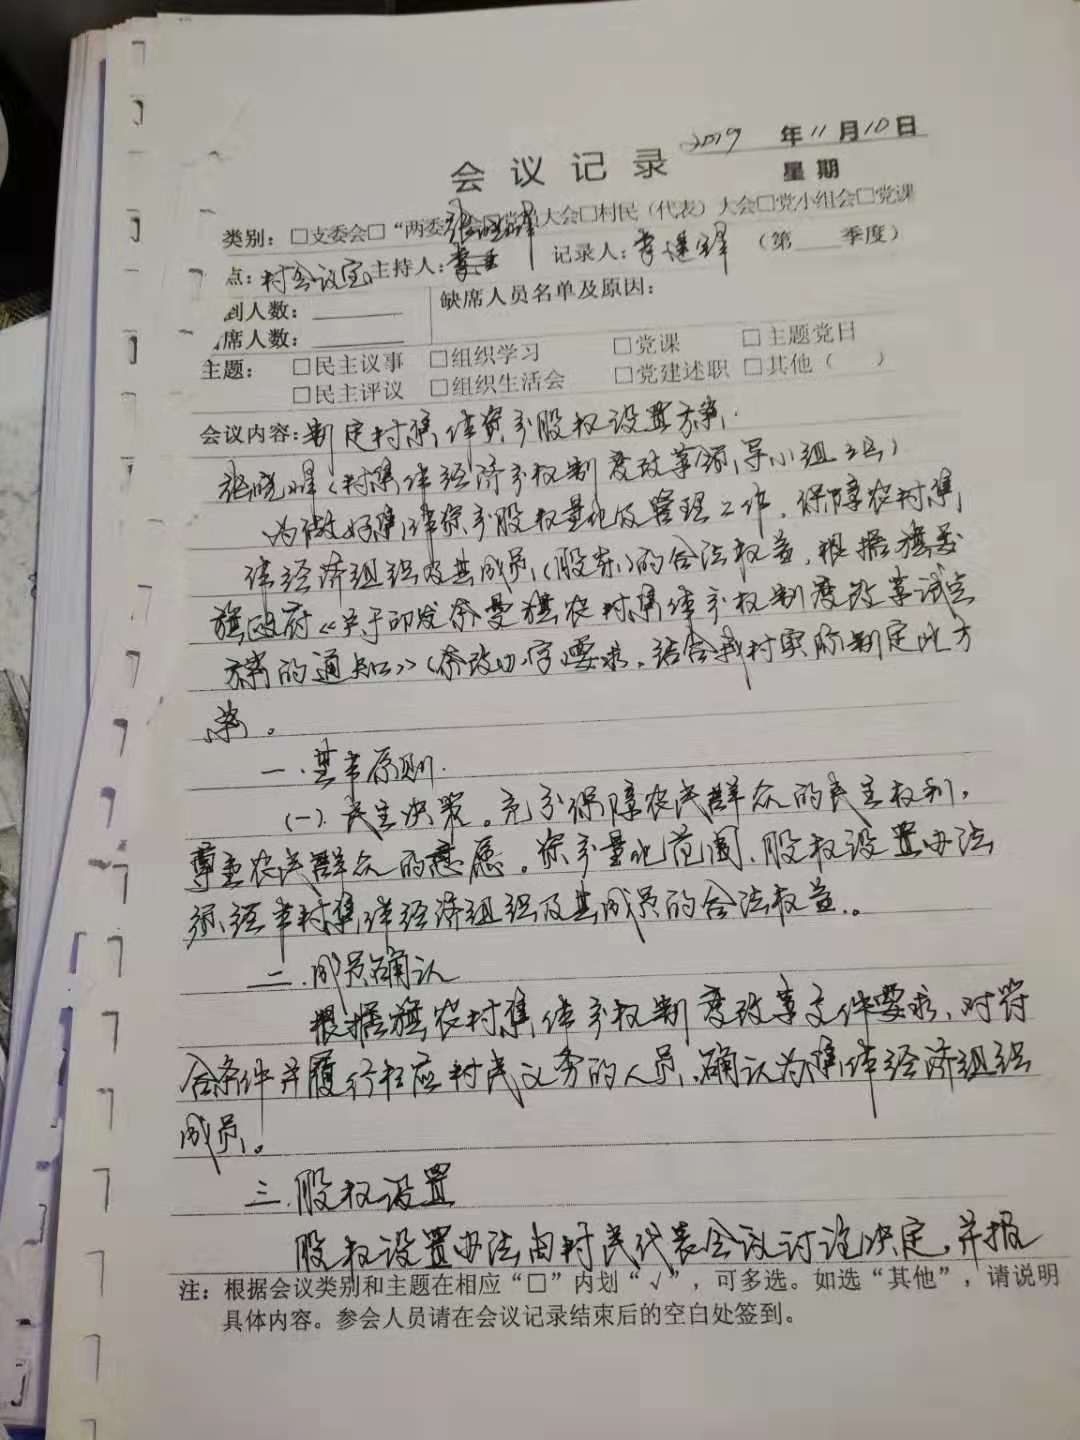 2019 年11月10日
会议记录
星期
类别：□支委会□“两委 大会□村民（代表）大会□党小组会□党课
点：村会议室 主持人： 记录人： （第 季度）
到人数： 缺席人员名单及原因：
席人数：
主题： □民主议事 □组织学习 □党课 □主题党日
□民主评议 □组织生活会 □党建述职 □其他（ ）
会议内容：制定村集体资产股权设置方案.
张晓峰（村集体经济产权制度改革领导小组组长）
为做好集体资产股权量化及管理工作，保障农村集
体经济组织及其成员（股东）的合法权益，根据旗委
旗政府《关于印发奈曼旗农村集体产权制度改革试点
方案的通知》 字要求，结合我村实际制定此方
案。
一.基本原则.
(一).民主决策。充分保障农民群众的民主权利，
尊重农民群众的意愿。资产量化范围、股权设置办法
须经本村集体经济组织及其成员的合法权益。
二.成员确认
根据旗农村集体产权制度改革文件要求，对符
合条件并履行相应村民义务的人员，确认为集体经济组织
成员。
三.股权设置
股权设置办法由村民代表会议讨论决定，并报
注：根据会议类别和主题在相应“□”内划“√”，可多选。如选“其他”，请说明
具体内容。参会人员请在会议记录结束后的空白处签到。